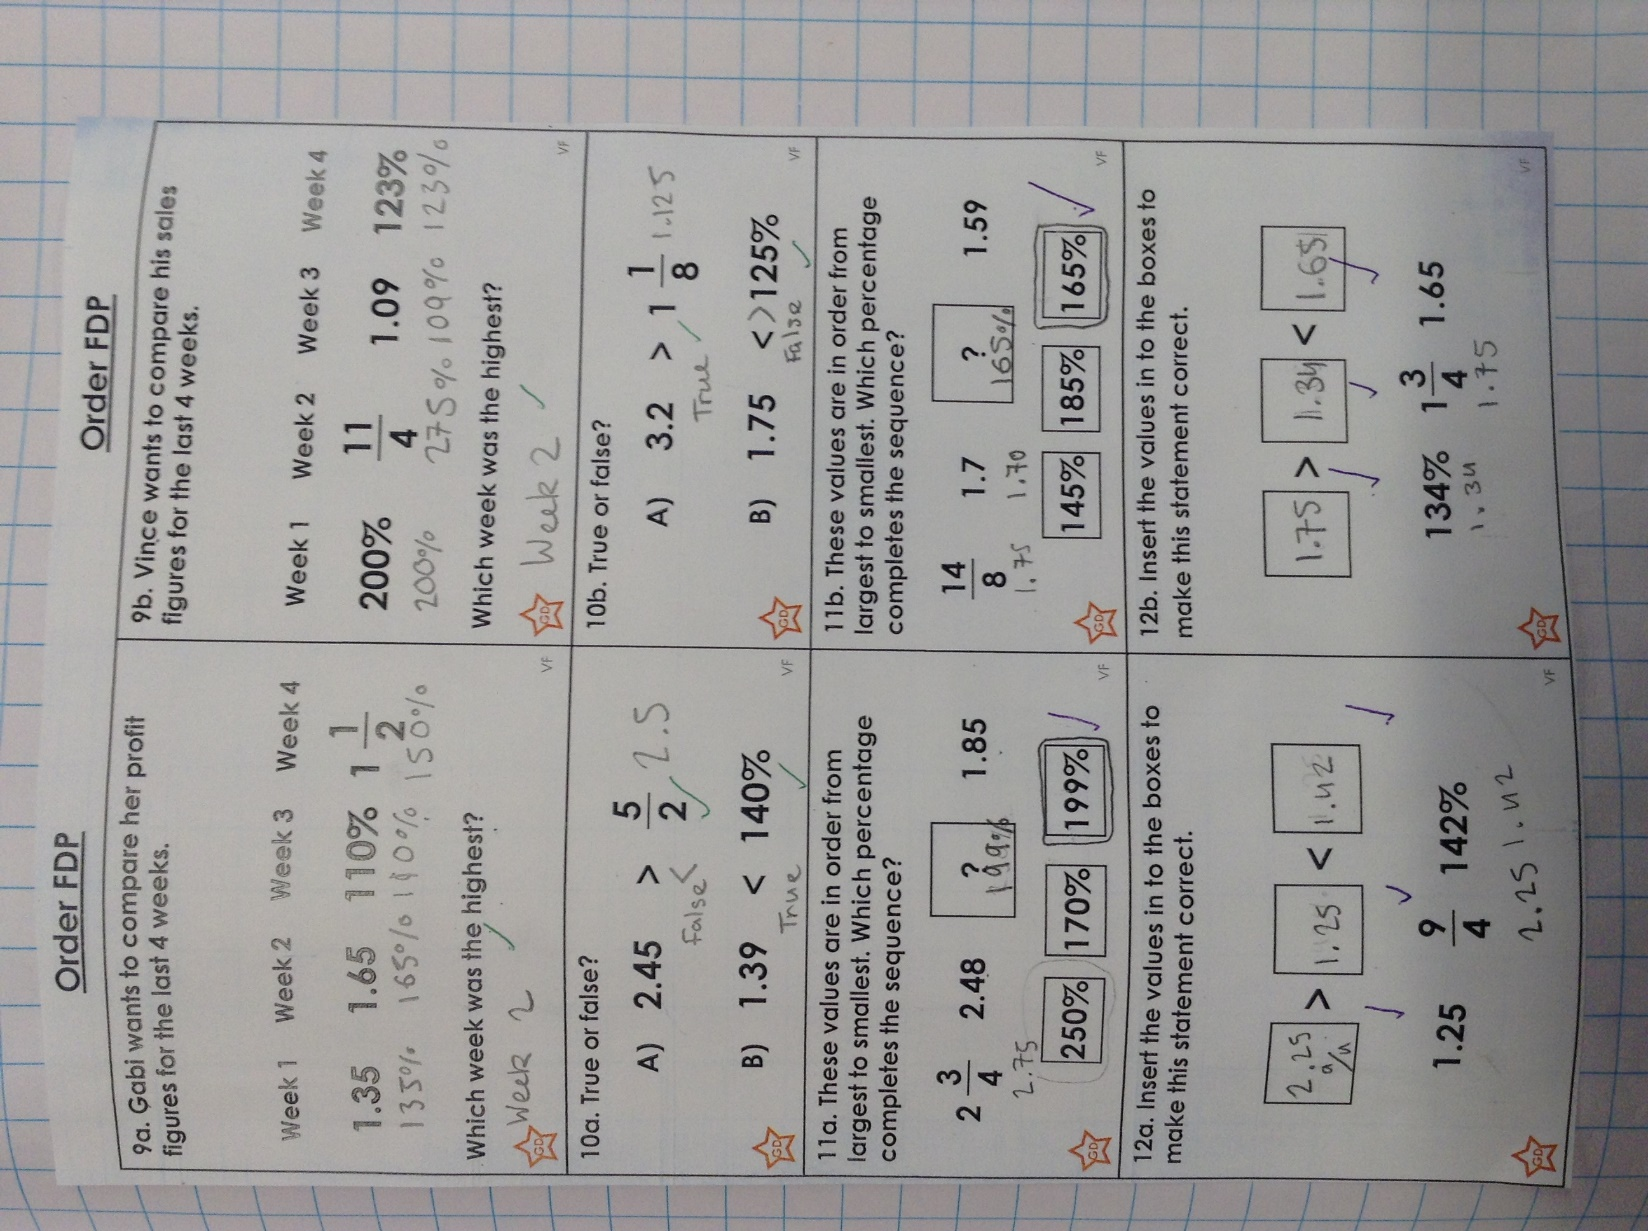 Order FDP
9a. Gabi wants to compare her profit
figures for the last 4 weeks.
Week 1 Week 2 Week 3 Week 4
1.35 1.65 110% 1 1/2
135% 165% 110% 150%
Which week was the highest?
Week 2
GD
VF
10a. True or false?
A) 2.45 > 5/2 2.5
False <
B) 1.39 < 140%
True
GD
VF
11a. These values are in order from
largest to smallest. Which percentage
completes the sequence?
2 3/4 2.48 ? 1.85
2.75 199%
250% 170% 199%
GD
VF
12a. Insert the values in to the boxes to
make this statement correct.
2.25 > 1.25 < 1.42
9/4
1.25 9/4 142%
2.25 1.42
GD
VF
Order FDP
9b. Vince wants to compare his sales
figures for the last 4 weeks.
Week 1 Week 2 Week 3 Week 4
200% 11/4 1.09 123%
200% 275% 109% 123%
Which week was the highest?
Week 2
GD
VF
10b. True or false?
A) 3.2 > 1 1/8 1.125
True
B) 1.75 < > 125%
False
GD
VF
11b. These values are in order from
largest to smallest. Which percentage
completes the sequence?
14/8 1.7 ? 1.59
1.75 1.70 165%
145% 185% 165%
GD
VF
12b. Insert the values in to the boxes to
make this statement correct.
1.75 > 1.34 < 1.65
134% 1 3/4 1.65
1.34 1.75
GD
VF